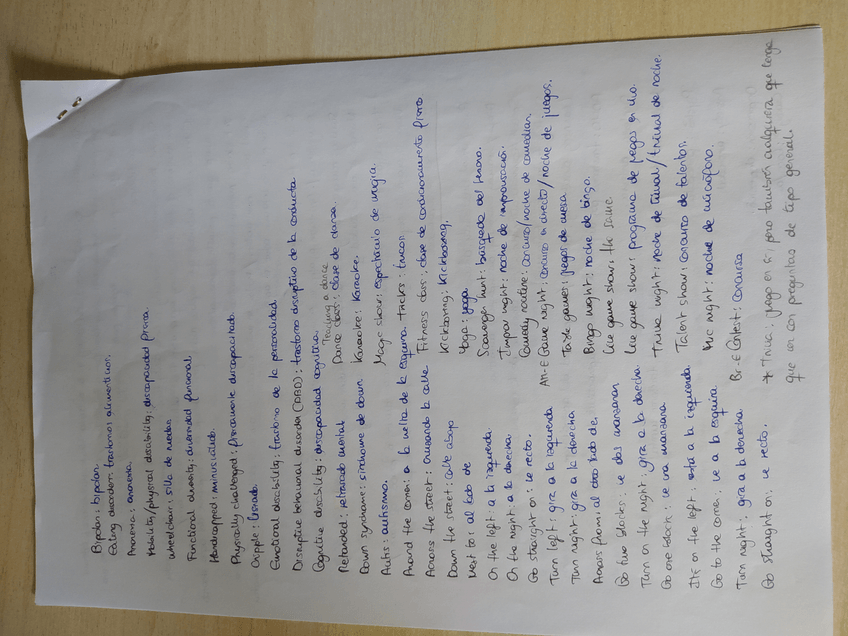 Bipolar: bipolar.
Eating disorder: trastornos alimenticios.
Anorexia: anorexia.
Mobility/physical disability: discapacidad física
wheelchair: silla de ruedas
Functional diversity: diversidad funcional.
Handicapped: minusválido.
Physically challenged: físicamente discapacitado.
Cripple: lisiado.
Emotional disability: trastorno de la personalidad.
Disruptive behavioral disorder (DBD): trastorno disruptivo de la conducta
Cognitive disability: discapacidad cognitiva.
Retarded: retrasado mental
Down syndrome: síndrome de down
Autis: autismo.
Around the corner: a la vuelta de la esquina.
Across the street: cruzando la calle
Down the street: calle abajo
Next to: al lado de
On the left: a la izquierda
On the right: a la derecha.
Go straight on: ve recto.
Turn left: gira a la izquierda
Turn right: gira a la derecha
Across from: al otro lado de.
Go two blocks: ve dos manzanas
Turn on the right: gira a la derecha
Go one block: ve una manzana
It's on the left: está a la izquierda
Go to the corner: ve a la esquina.
Turn right: gira a la derecha.
Go straight on: ve recto.
Teaching a dance
Dance class: clase de danza.
Karaoke: karaoke.
Magic show: espectáculo de magia.
tricks: trucos.
Fitness class: clase de condicionamiento físico
Kickboxing: kickboxing.
Yoga: yoga
Scavenger hunt: búsqueda del tesoro.
Improv night: noche de improvisación.
Comedy routine: concurso/noche de comedian.
Am-E Game night: concurso en directo/noche de juegos.
Table games: juegos de mesa.
Bingo night: noche de bingo.
Live game show: the same.
Live game show: programa de juegos en vivo.
Trivia night: noche de trivial/trivial de noche.
Talent show: concurso de talentos.
Mic night: noche de micrófono.
Br-E Contest: concurso
* Trivia: juego en sí pero también cualquiera que tenga
que ver con preguntas de tipo general.